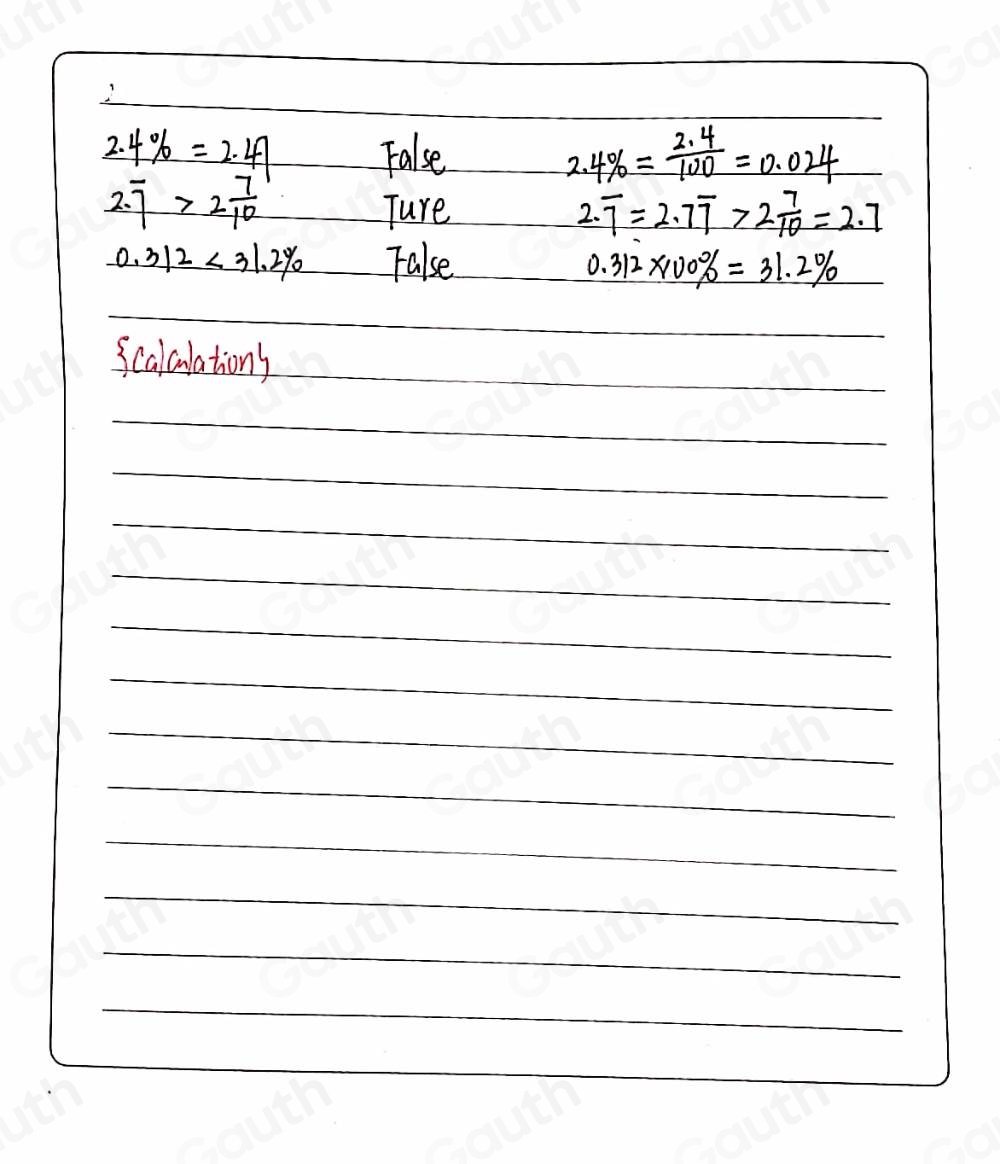 2.4% = 2.4 False 2.4% = 2.4/100 = 0.024
2.7̅ > 2 7/10 Ture 2.7̅ = 2.77̅ > 2 7/10 = 2.7
0.312 < 31.2% False 0.312 × 100% = 31.2%
{calculation}